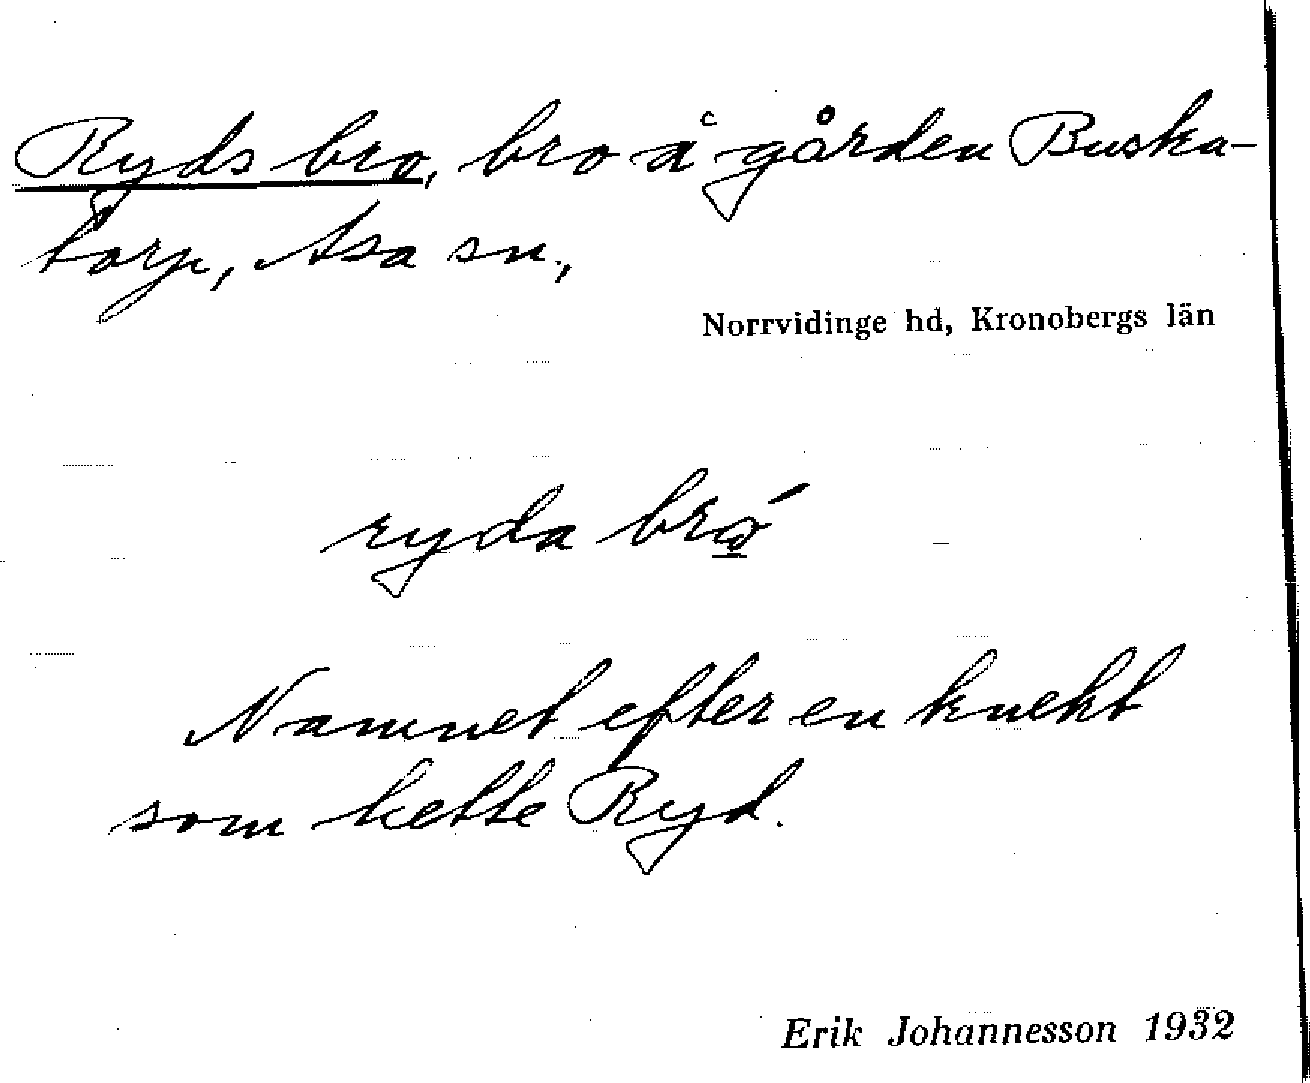 Ryds bro, bro å gården Buska-
torp, Asa sn.,
Norrvidinge hd, Kronobergs län
ryda
Namnet efter en knekt
som hette Ryd.
Erik Johannesson 1932